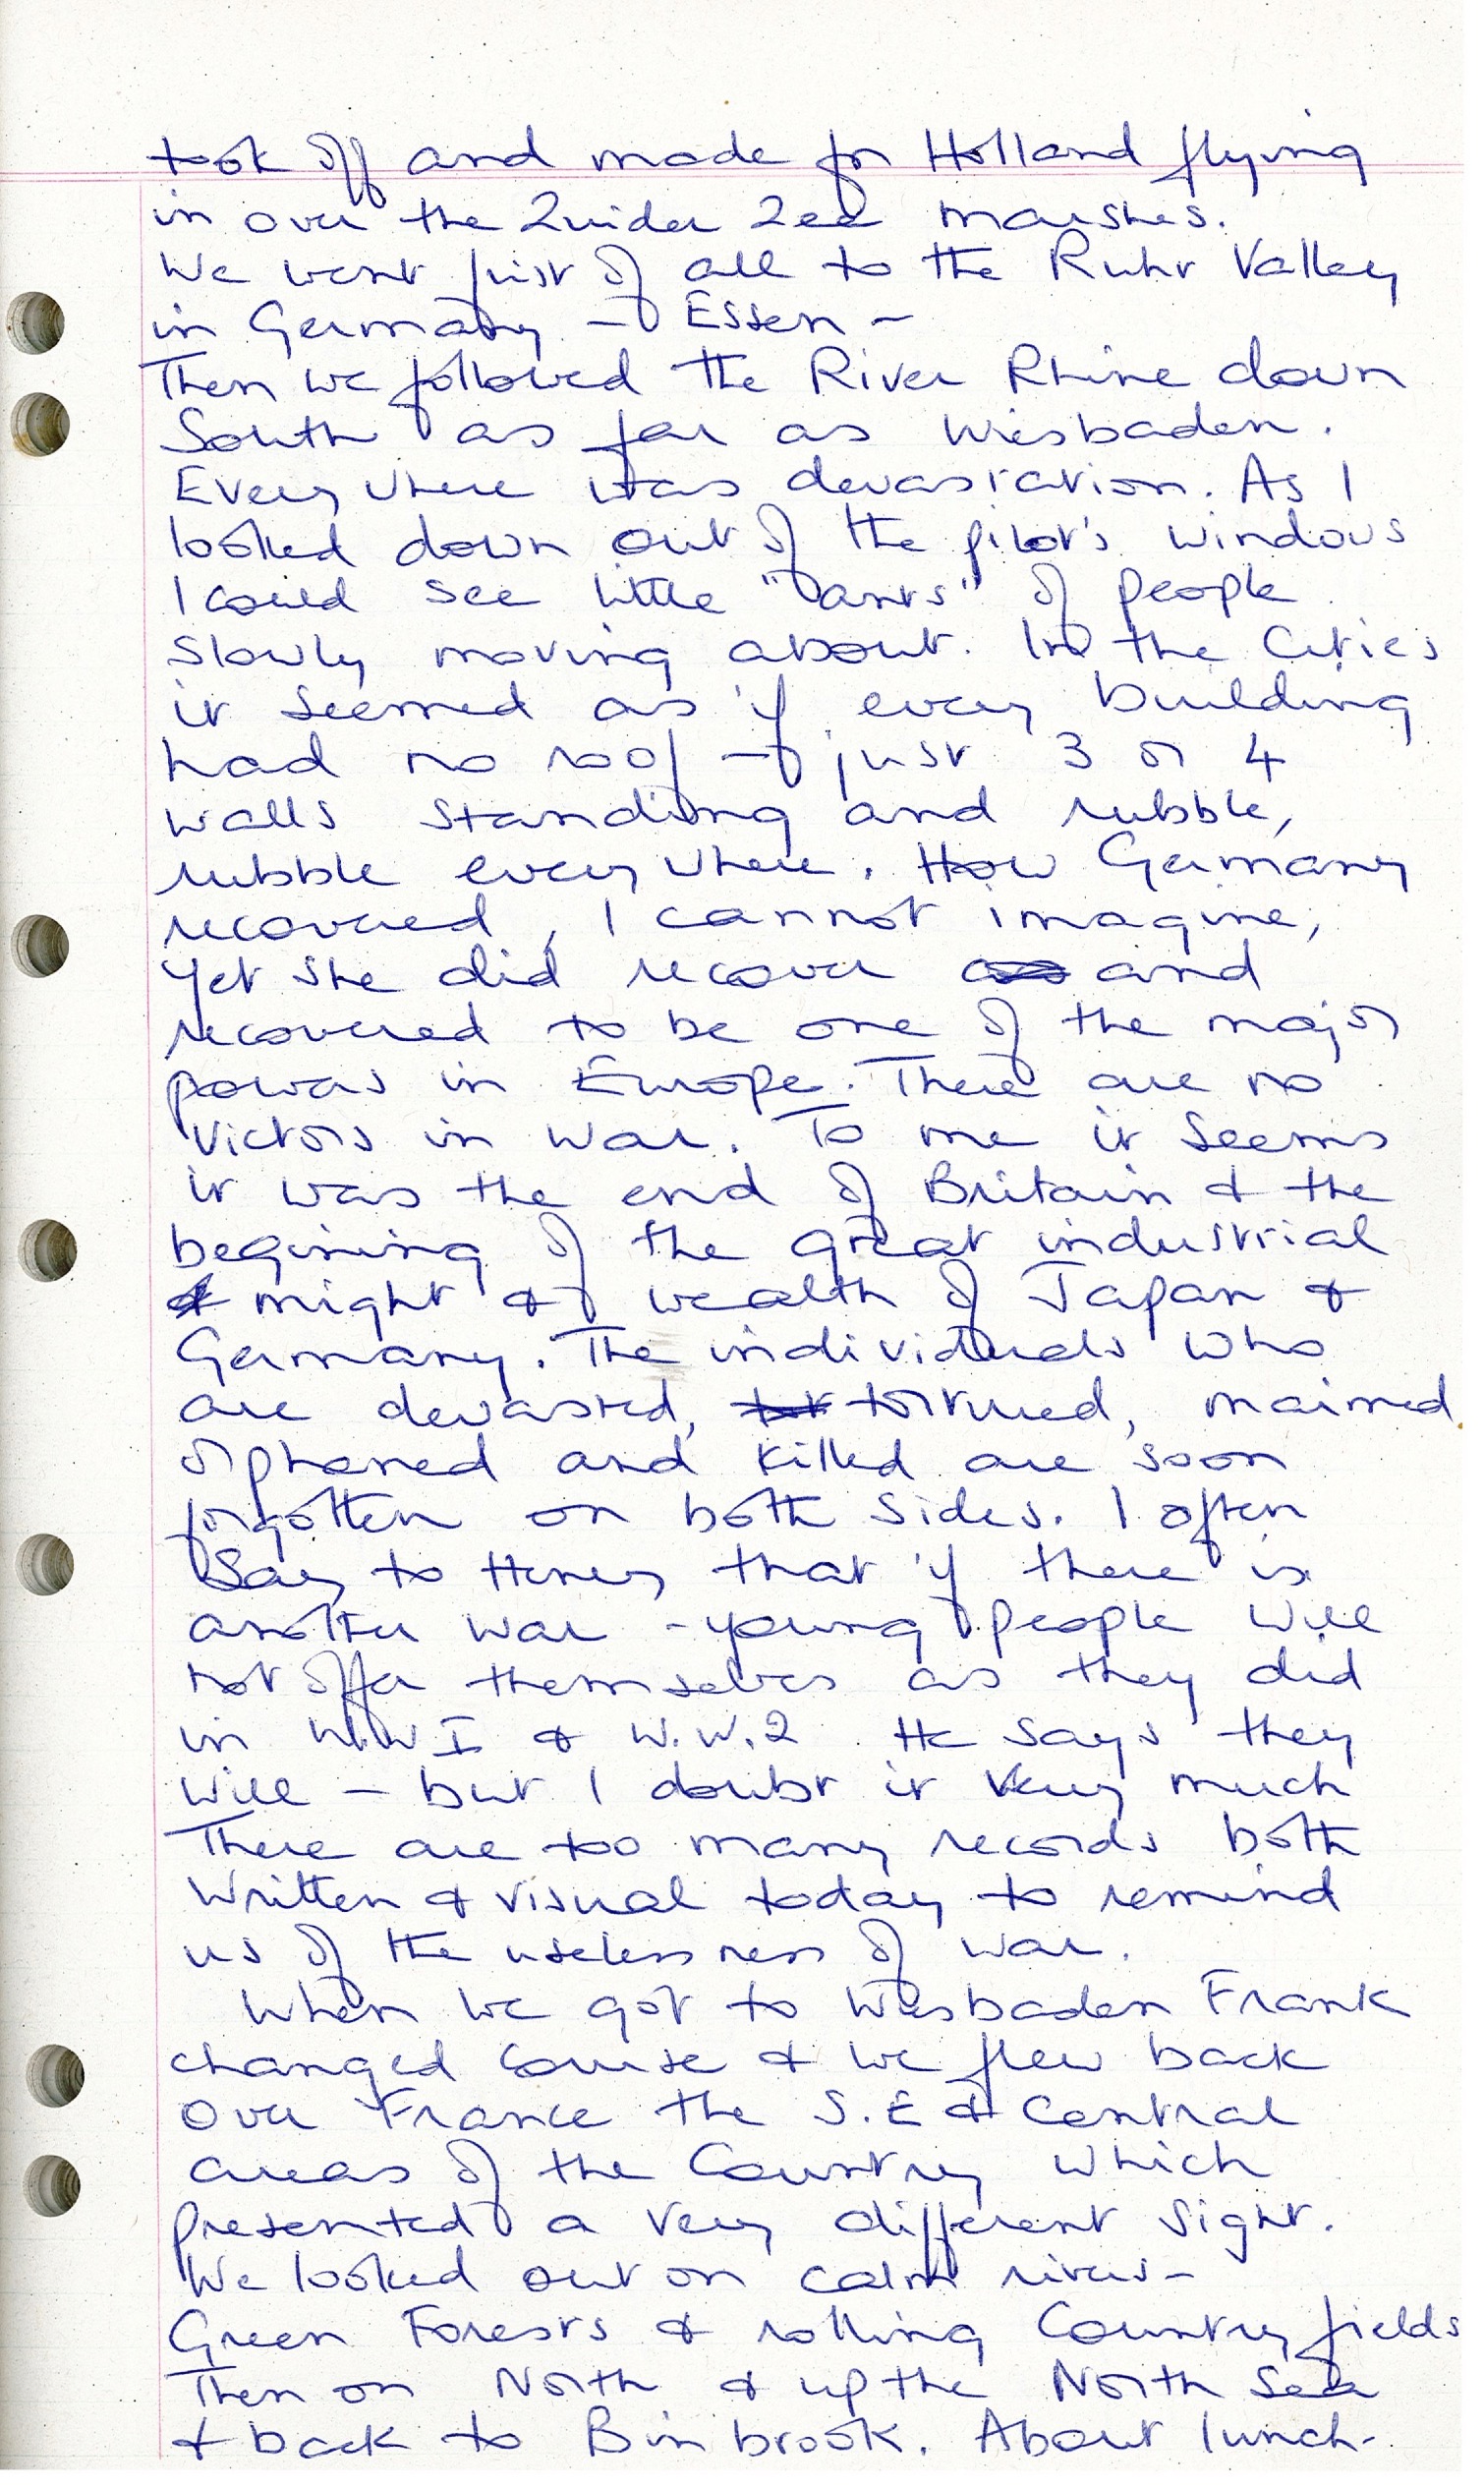 took off and made for Holland flying
in over the Zuider Zee marshes.
We went first of all to the Ruhr Valley
in Germany - Essen -
Then we followed the River Rhine down
South as far as Wiesbaden.
Every where was devastation. As I
looked down out of the pilot's windows
I could see little "ants" of people
slowly moving about. In the Cities
it seemed as if every building
had no roof - just 3 or 4
walls standing and rubble,
rubble every where. How Germany
recovered, I cannot imagine,
yet she did recover and
recovered to be one of the major
powers in Europe. There are no
Victors in war. To me it seems
it was the end of Britain & the
begining of the great industrial
might & wealth of Japan &
Germany. The individuals who
are devasted, tortured, maimed,
orphaned and killed are soon
forgotten on both sides. I often
Say to Henry that if there is
another war - young people will
not offer themselves as they did
in W.W I & W.W.2. He says they
will - but I doubt it very much
There are too many records both
written & visual today to remind
us of the uselessness of war.
When we got to Wiesbaden Frank
changed course & we flew back
over France the S.E & Central
areas of the Country which
presented a very different sight.
We looked out on calm rivers -
Green Forests & rolling Country fields
Then on North & up the North Sea
& back to Binbrook. About lunch-